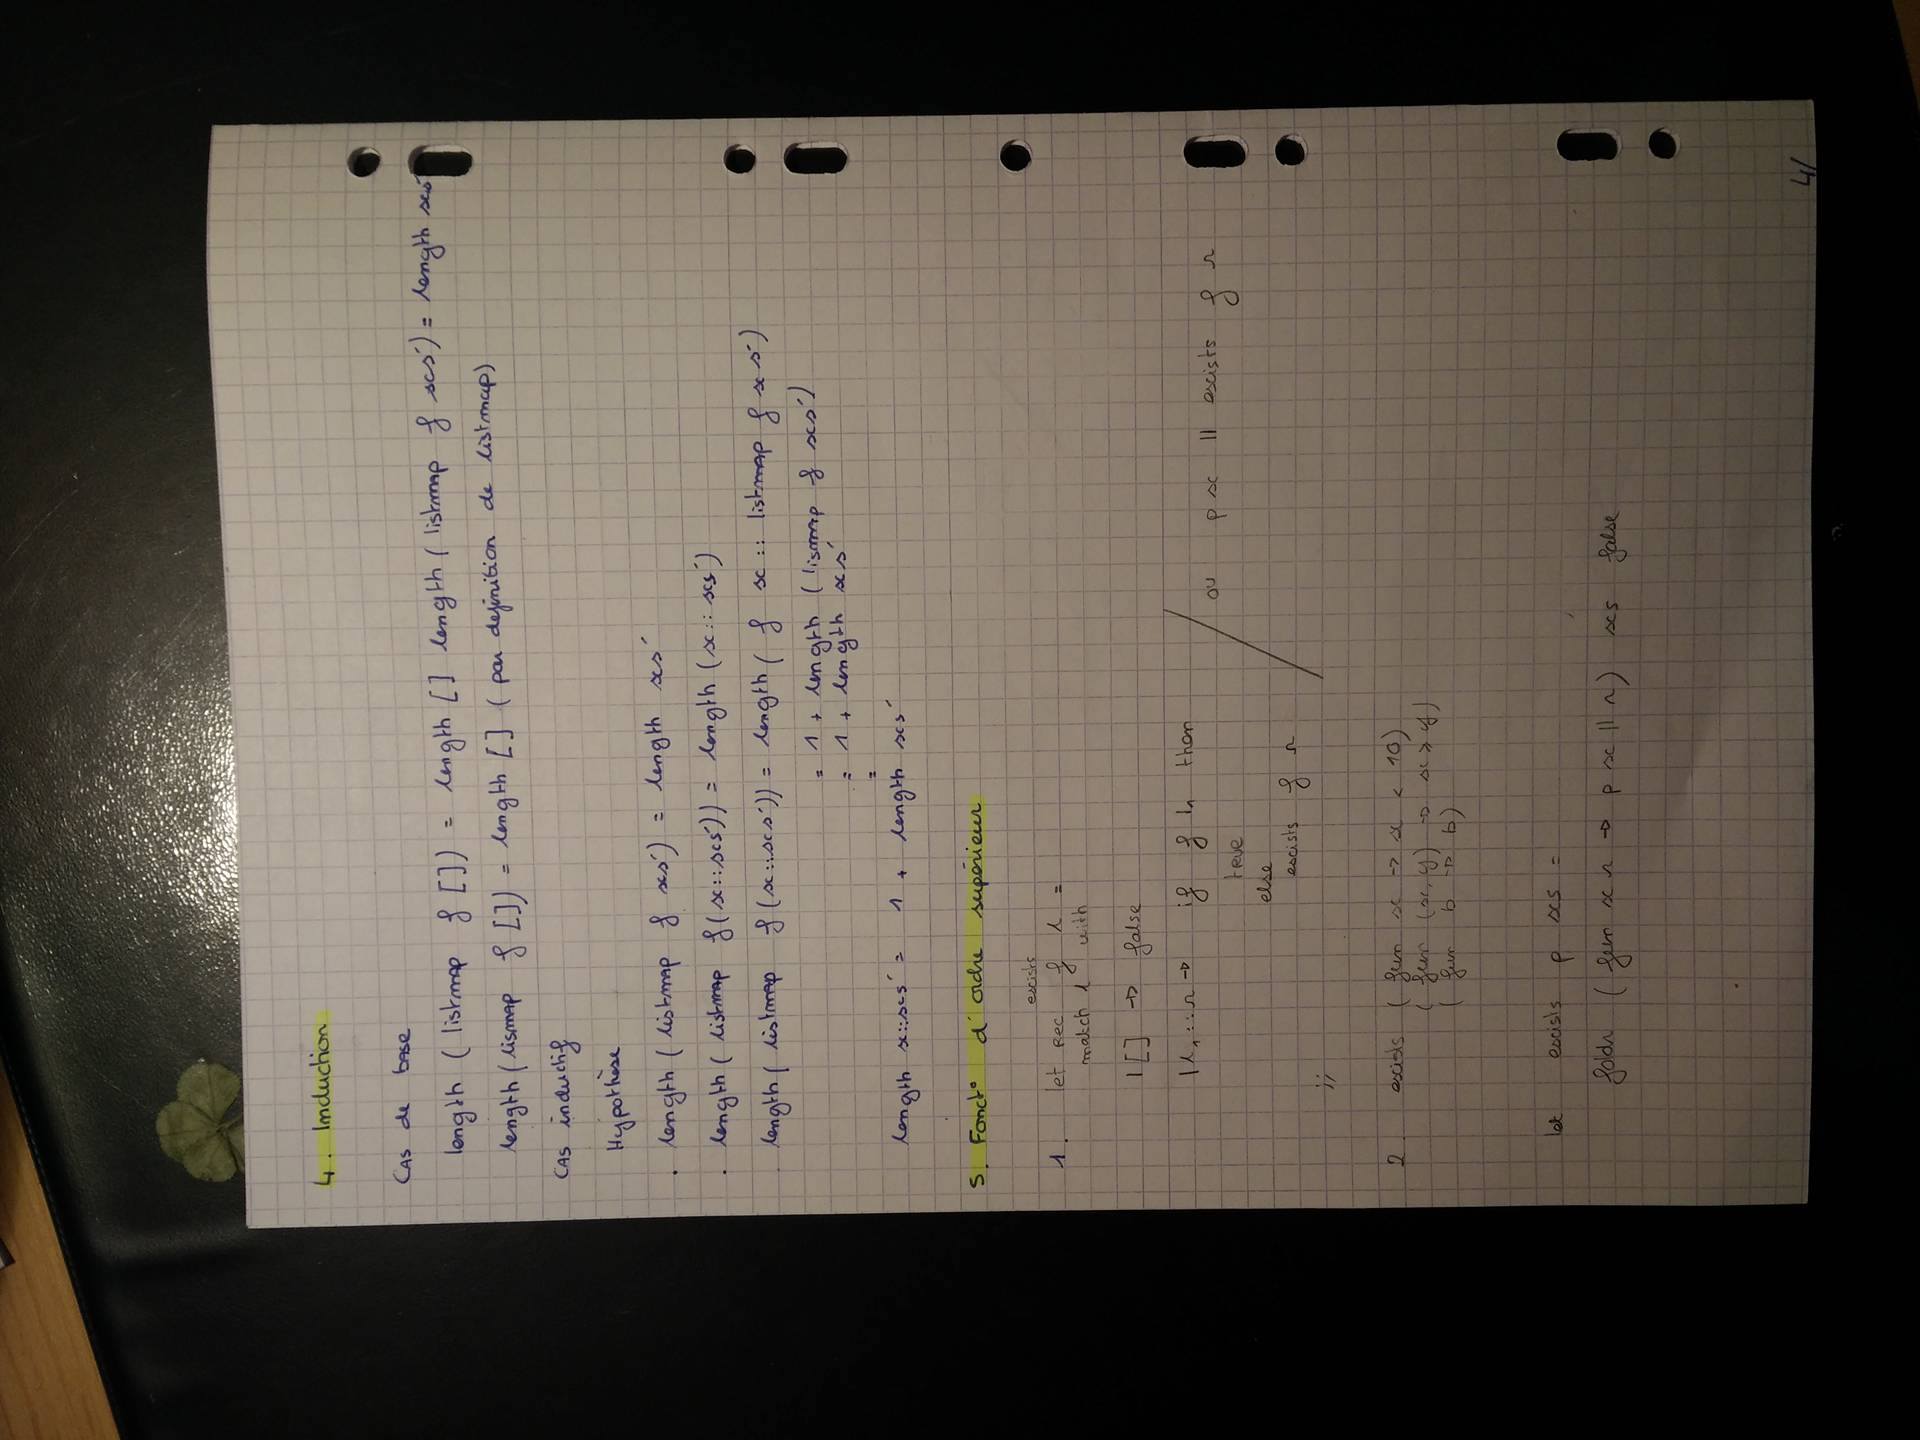 4. Induction
Cas de base
length (listmap f []) = length [] length (listmap f xs') = length xs'
length (lismap f []) = length [] (par définition de listmap)
Cas inductif
Hypothèse
. length (listmap f xs') = length xs'
. length (listmap f (x::xs')) = length (x::xs')
. length (listmap f (x::xs')) = length (f x :: listmap f xs')
= 1 + length (lismap f xs')
= 1 + length xs'
=
length x::xs' = 1 + length xs'
5. Fonct° d'ordre supérieur
1. let rec exists f l =
match l f with
| [] -> false
| h::r -> if f h then ou p x || exists f r
true
else
exists f r
;;
2 exists (fun x -> x < 10)
(fun (x,y) -> x > y)
(fun b -> b)
let exists p xs =
foldr (fun x r -> p x || r) xs false
4/